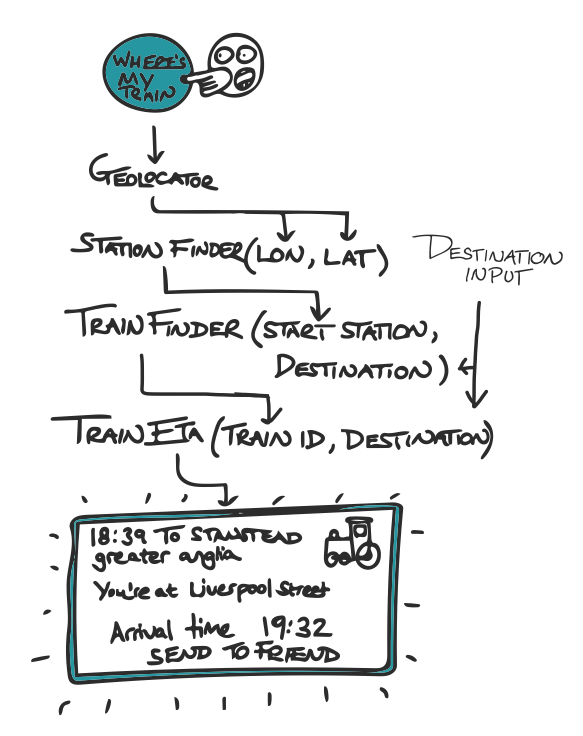 WHERE'S
MY
TRAIN
GEOLOCATOR
STATION FINDER (LON, LAT)
DESTINATION
INPUT
TRAIN FINDER (START STATION,
DESTINATION)
TRAIN ETA (TRAIN ID, DESTINATION)
18:39 TO STANSTEAD
greater anglia
You're at Liverpool Street
Arrival time 19:32
SEND TO FRIEND